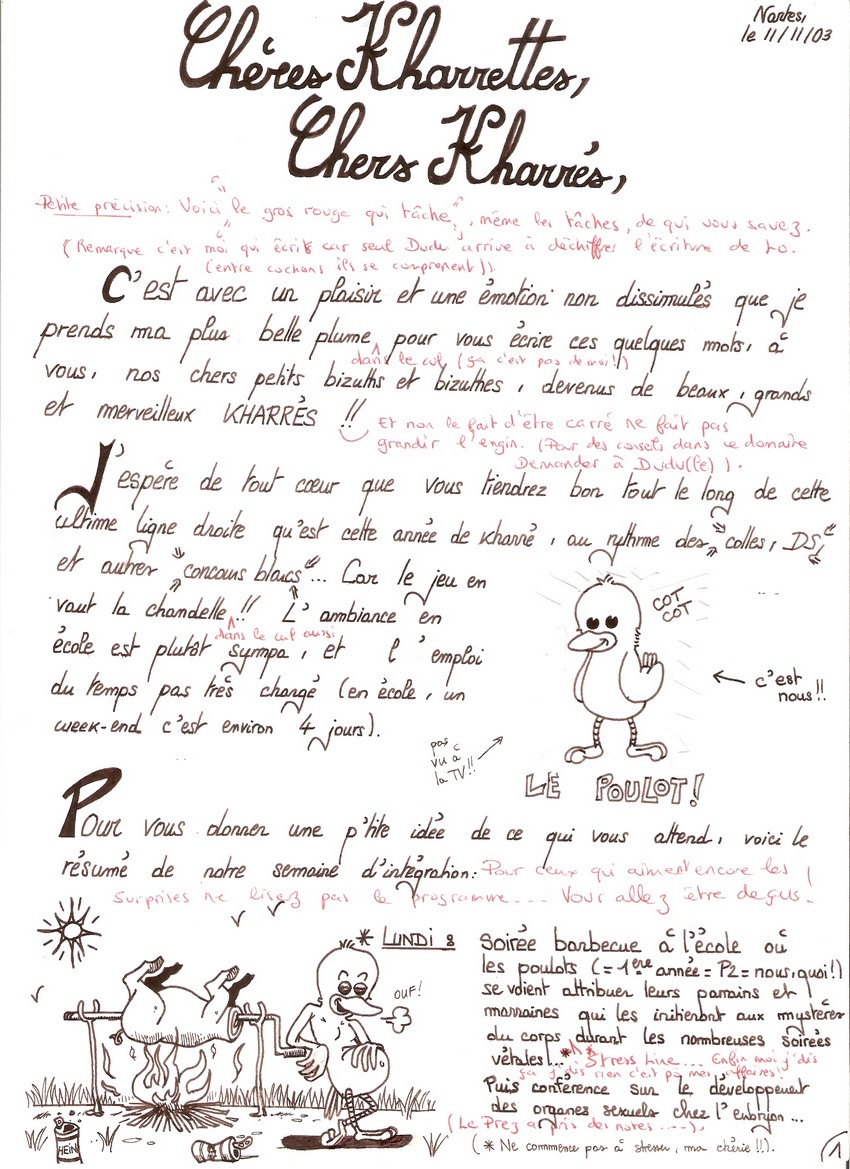 Nantes,
le 11/11/03
Chères Kharrettes,
Chers Kharrés,
Petite précision : Voici "le gros rouge qui tâche", même les tâches, de qui vous savez.
(Remarque c'est "moi" qui écrit car seul Dudu arrive à déchiffrer l'écriture de Lo.
(entre cochons ils se comprenent)).
C'est avec un plaisir et une émotion non dissimulés que je
prends ma plus belle plume, pour vous écrire ces quelques mots, à
dans le cul (ça c'est pas de moi!)
vous, nos chers petits bizuths et bizuthes, devenus de beaux, grands
et merveilleux KHARRÉS !!
Et non le fait d'être carré ne fait pas
grandir l'engin. (Pour des conseils dans ce domaine
Demander à Dudu(le)).
J'espère de tout cœur que vous tiendrez bon tout le long de cette
ultime ligne droite qu'est cette année de kharré, au rythme des "colles, DS,"
et autres "concours blancs"... Car le jeu en
vaut la chandelle !! L'ambiance en
dans le cul aussi
école est plutôt sympa, et l'emploi
du temps pas très chargé (en école, un
week-end c'est environ 4 jours).
COT
COT
← c'est
nous !!
pas
vu à
la TV!!
LE POULOT!
Pour vous donner une p'tite idée de ce qui vous attend, voici le
résumé de notre semaine d'intégration: Pour ceux qui aiment encore les
surprises ne lisez pas le programme... Vous allez être degus.
* LUNDI 8
Soirée barbecue à l'école où
les poulots (= 1ère année = P2 = nous, quoi!)
se voient attribuer leurs parrains et
marraines qui les initieront aux mystères
du corps durant les nombreuses soirées
vétales...* Stress Line... Enfin moi j'dis
ça j'dis rien c'est pas mes affaires!
Puis conférence sur le développement
des organes sexuels chez l'embryon...
(Le Prez a pris des notes....).
(* Ne commence pas à stresser, ma chérie !!).
OUF!
HEIN
1